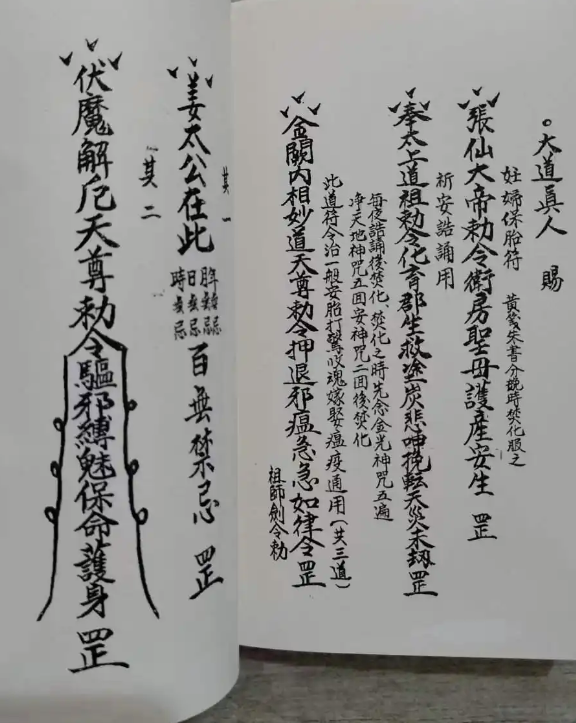 大道眞人 賜
妊婦保胎符 黃箋朱書分娩時焚化服之
張仙大帝勅令衛房聖母護產安生 罡
祈安誥誦用
奉太上道祖勅令化育群生救塗炭悲呻挽転天災末劫罡
每夜誥誦後焚化、焚化之時先念金光神咒五遍
净天地神咒五回安神咒二回後焚化
此道符令治一般安胎打驚收魂嫁娶瘟疫通用(共三道)
金闕內相妙道天尊勅令押退邪瘟急急如律令罡
祖師劍令勅
其一
姜太公在此 年無忌 月無忌 日無忌 時無忌 百無禁忌 罡
其二
伏魔解厄天尊勅令驅邪縛魅保命護身 罡